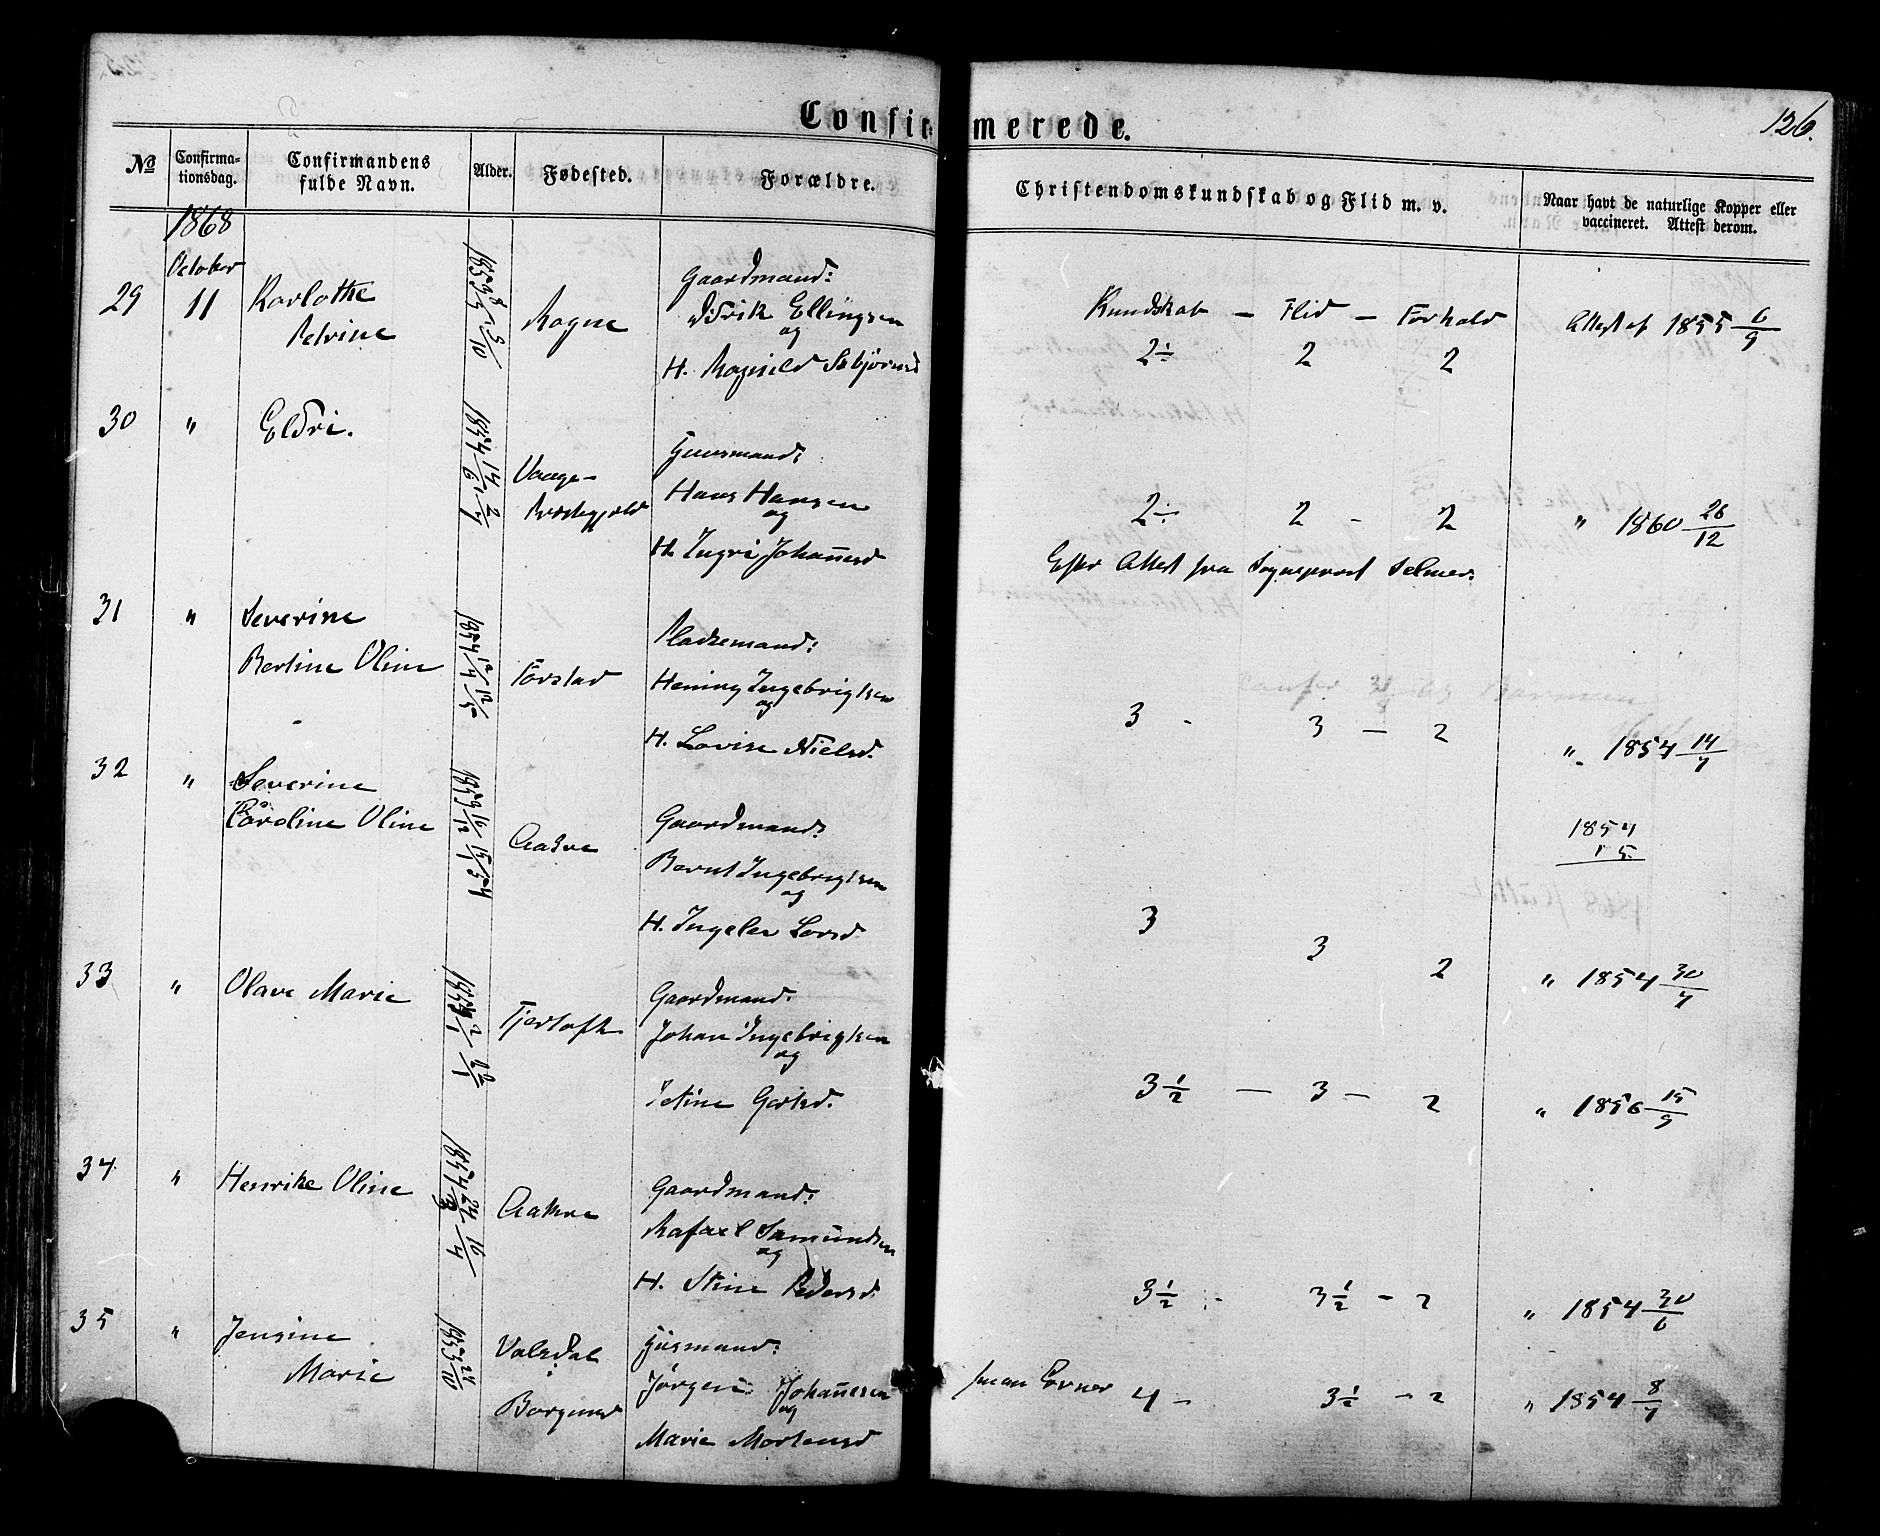 126.
Confirmerede.
No
Confirma-
tionsdag.
Confirmandens
fulde Navn.
Alder.
Fødested.
Forældre.
Christendomskundskab og Flid m. v.
Naar havt de naturlige Kopper eller
vaccineret. Attest derom.
1868
October
29 11 Karlothe
Petrine
Rogne
Gaardmand:
Didrik Ellingsen
og
H. Ragnild Sebjørnsd
Kundskab — Flid — Forhold
2÷ 2 2
Attest af 1855 6/9
30 " Eldri.
1854 14/6 2/7
Vaage-
Præstegjeld
Huusmand:
Hans Hansen
og
H. Ingri Johannesd
2÷ 2 - 2
" 1860 26/12
Efter Attest fra Sogneprest Selmer.
31 " Severine
Bertine Oline
1854 12/4 12/5
Forstad
Pladsemand:
Hening Ingebrigtsen
og
H. Lovise Nielsd.
3 - 3 — 2
" 1854 14/7
32 " Severine
Caroline Oline
1853 16/12 15/1 54
Aakre
Gaardmand:
Bernt Ingebrigtsen
og
H. Ingeler Larsd
1854
15
3 3 2
" 1854 30/7
33 " Olave Marie
Fjertoft
Gaardmand:
Johan Ingebrigtsen
og
Jetine Gertsd.
3½ — 3 — 2
" 1856 15/9
34 " Henrike Oline
1854 24/3 16/4
Aakre
Gaardmand:
Rafael Samundsen
og
H. Stine Pedersd.
3½ - 3½ - 2
" 1854 30/6
35 " Jensine
Marie
1853 24/10
Valsdal
i
Borgund
Husmand:
Jørgen Johannesen
og
Marie Mortensd
4 - 3½ - 2
" 1854 8/7